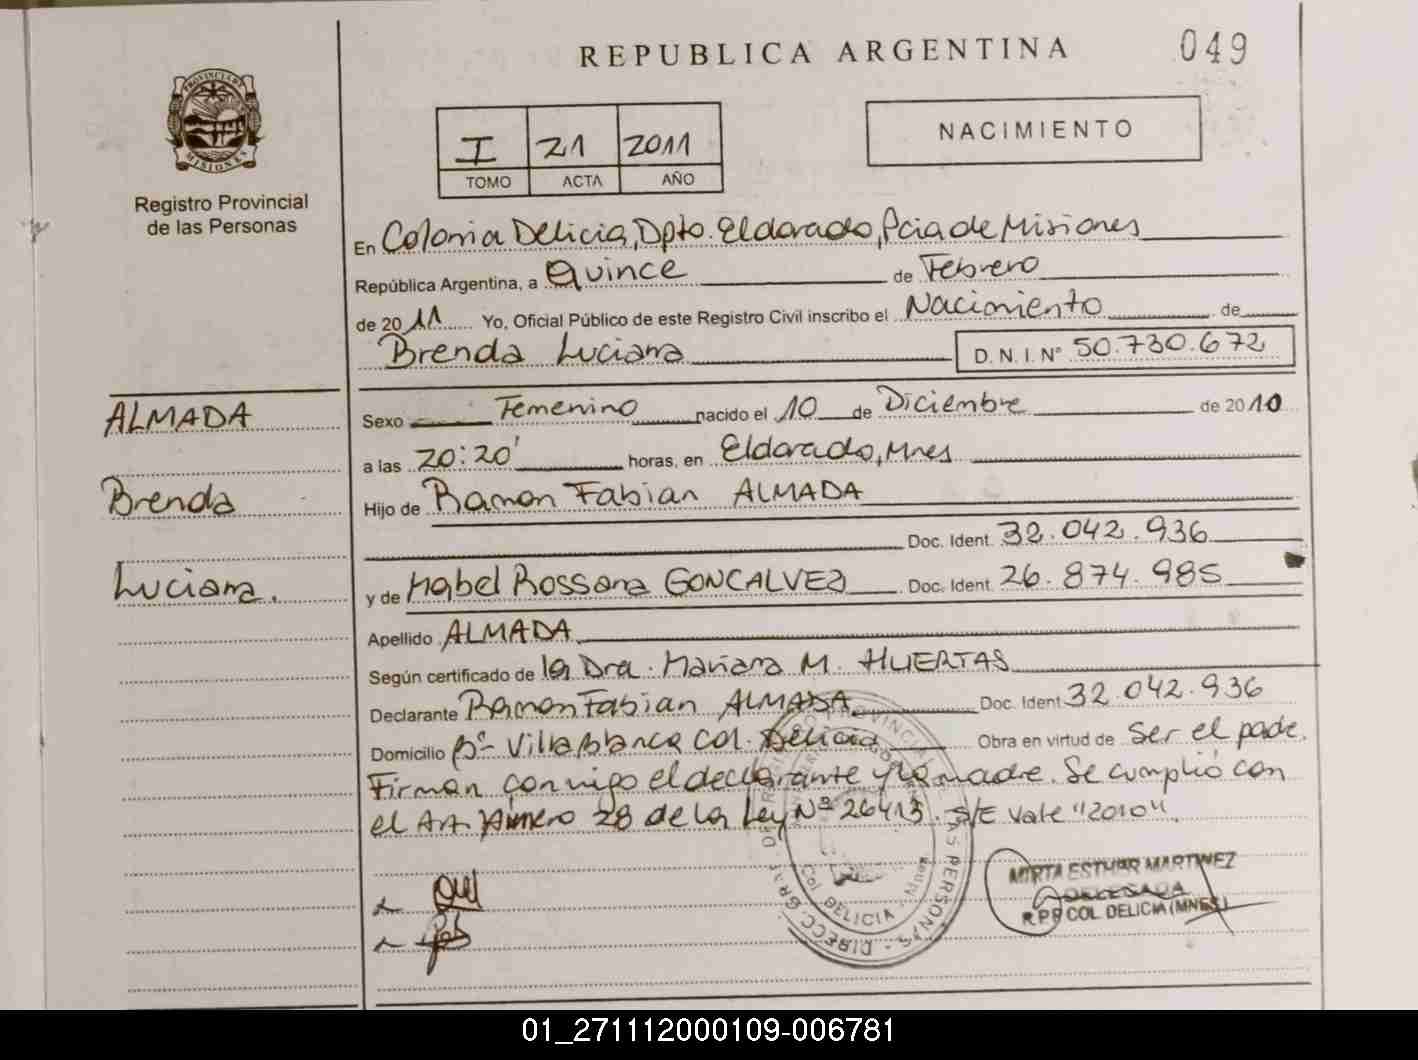 REPUBLICA ARGENTINA
049
PROVINCIA DE MISIONES
Registro Provincial
de las Personas
I 21 2011
TOMO ACTA AÑO
NACIMIENTO
En Colonia Delicia, Dpto. Eldorado, Pcia de Misiones
República Argentina, a Quince de Febrero
de 2011 Yo, Oficial Público de este Registro Civil inscribo el Nacimiento de
Brenda Luciana D. N. I. Nº 50.730.672
ALMADA
Brenda
Luciana.
Sexo Femenino nacido el 10 de Diciembre de 2010
a las 20:20' horas, en Eldorado, Mnes
Hijo de Ramon Fabian ALMADA
Doc. Ident. 32.042.936
y de Mabel Rossana GONCALVEZ Doc. Ident. 26.874.985
Apellido ALMADA
Según certificado de la Dra. Mariana M. HUERTAS
Declarante Ramon Fabian ALMADA Doc. Ident 32.042.936
Domicilio Bº Villa Blanca Col. Delicia Obra en virtud de Ser el padre.
Firman conmigo el declarante y la madre. Se cumplió con
el Art. Número 28 de la Ley Nº 26413. S/E Vale "2010".
Col. DELICIA
MIRTA ESTHER MARTINEZ
DELEGADA
R.P.P COL. DELICIA (MNES)
01_271112000109-006781